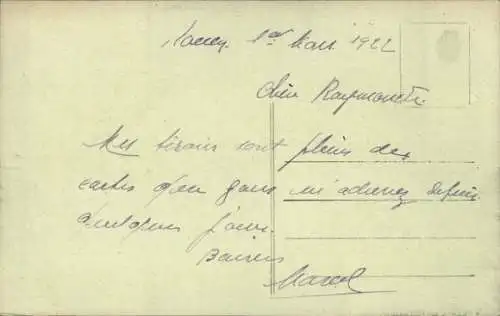 Nancy, 1er Mars 1922
Chère Raymonde.
Mes tiroirs sont pleins des
cartes que vous m'adressez depuis
quelques jours.
Baisers
Marcel